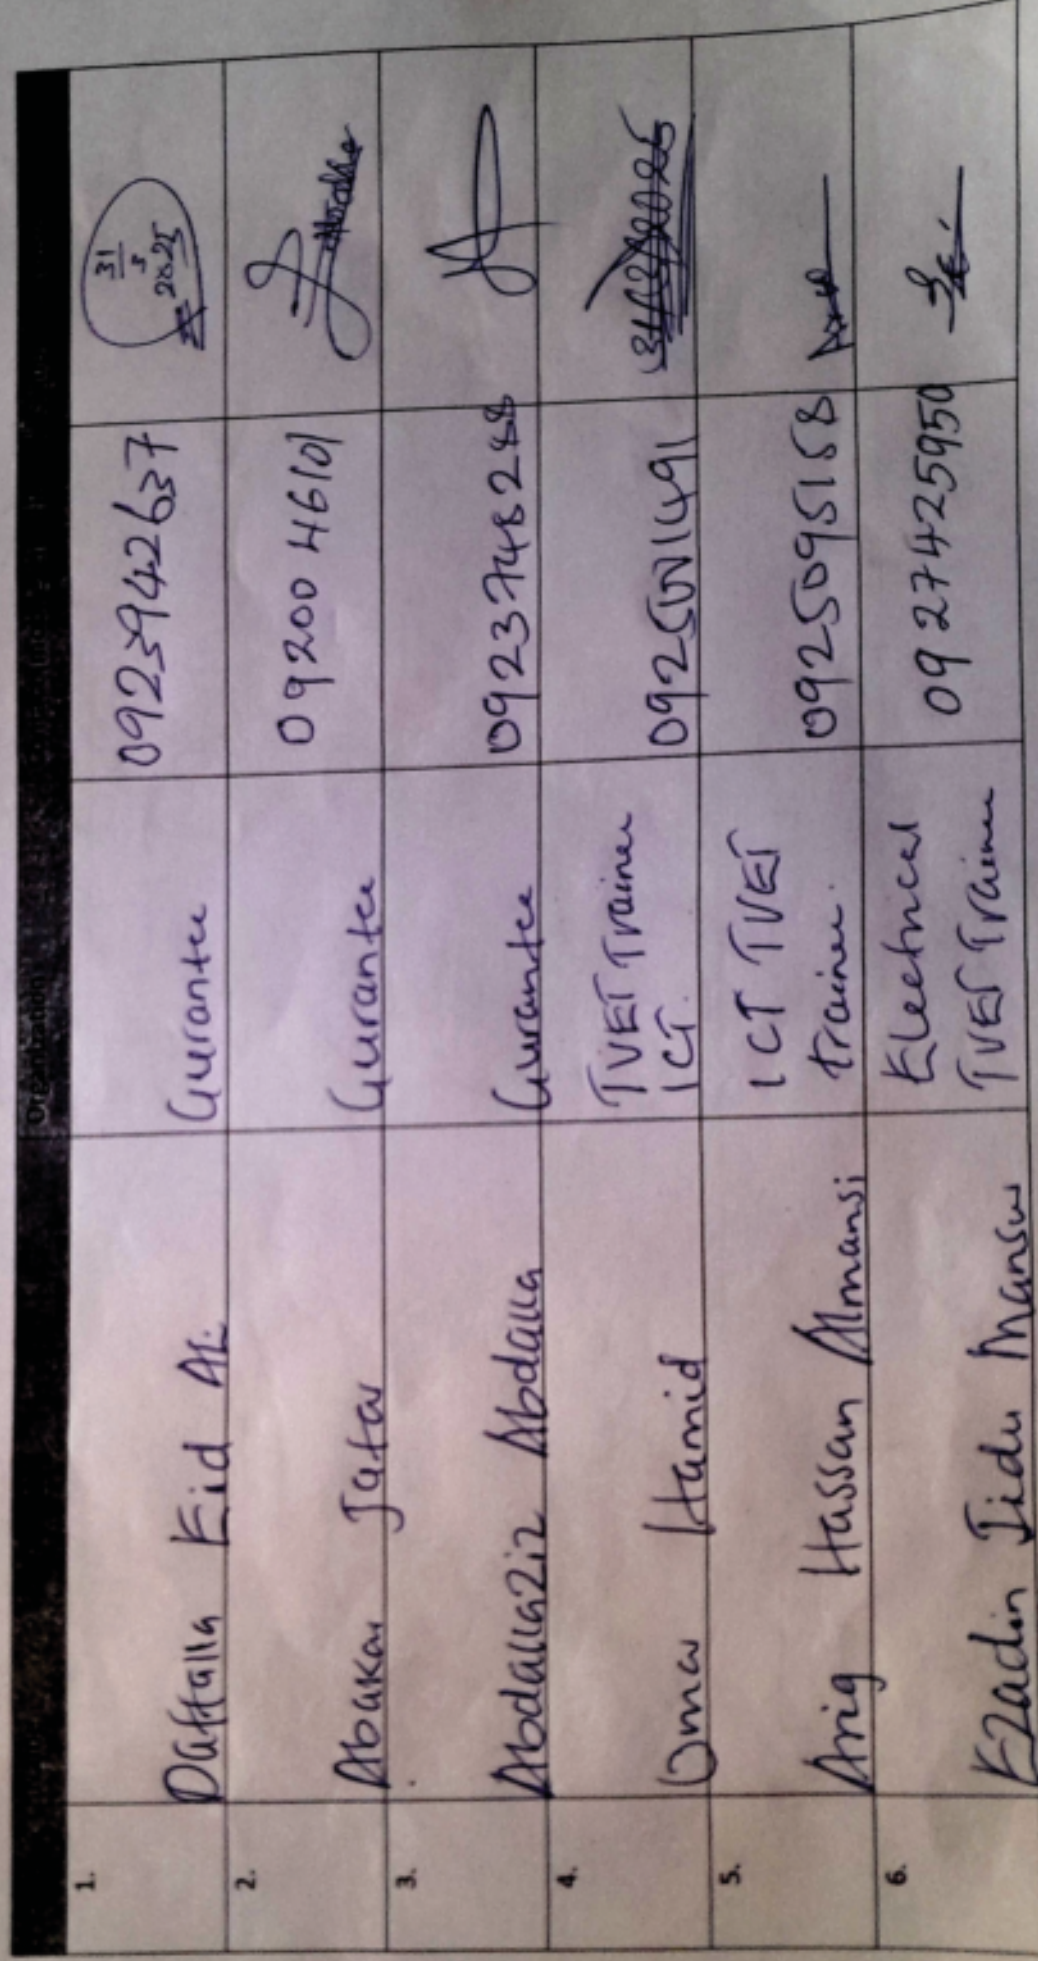 Organization
1. Daffalla Eid Ali Gurantee 0923942637 31/5/2025
2. Abakar Jafar Gurantee 0920046101
3. Abdallaziz Abdalla Gurantee 0923748288
4. Omar Hamid TVET Trainer
ICT.
5. Arig Hassan Almansi ICT TVET
trainer. 0925095158
6. Ezadin Jidu Mansur Electrical
TVET Trainer 0927425950